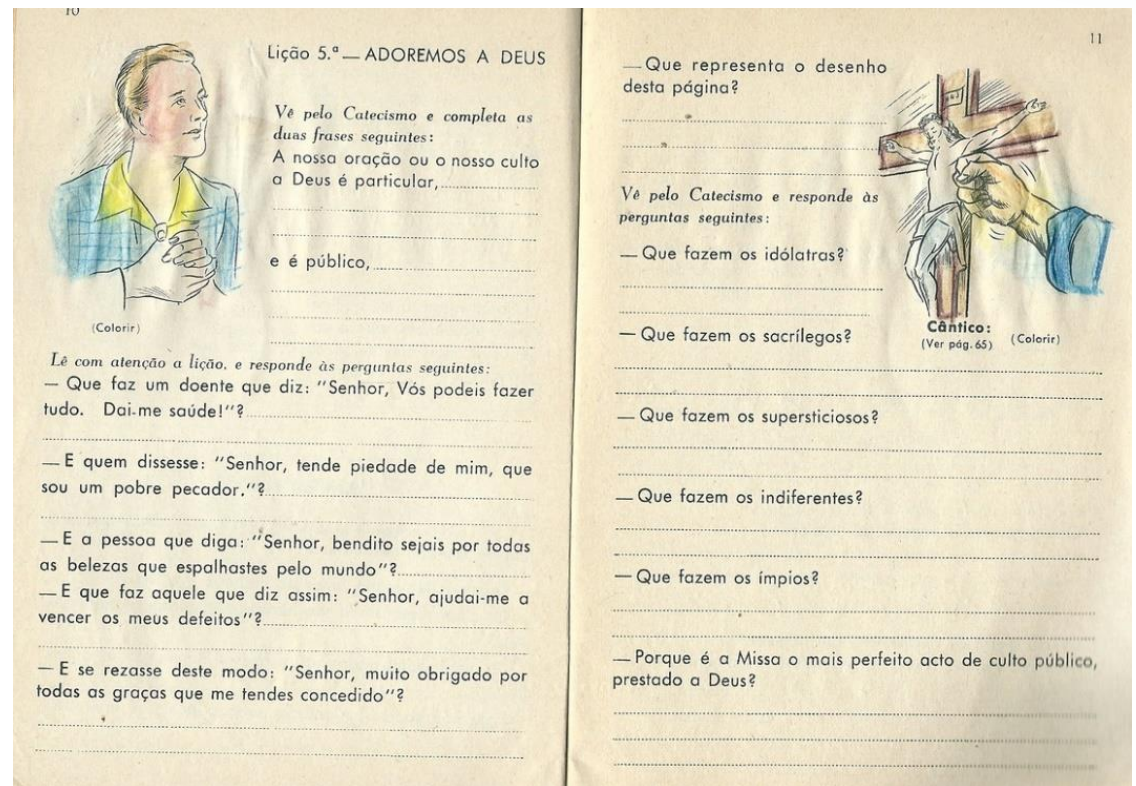 10
Lição 5.ª — ADOREMOS A DEUS
Vê pelo Catecismo e completa as
duas frases seguintes:
A nossa oração ou o nosso culto
a Deus é particular,
e é público,
(Colorir)
Lê com atenção a lição, e responde às perguntas seguintes:
— Que faz um doente que diz: "Senhor, Vós podeis fazer
tudo. Dai-me saúde!"?
— E quem dissesse: "Senhor, tende piedade de mim, que
sou um pobre pecador."?
— E a pessoa que diga: "Senhor, bendito sejais por todas
as belezas que espalhastes pelo mundo"?
— E que faz aquele que diz assim: "Senhor, ajudai-me a
vencer os meus defeitos"?
— E se rezasse deste modo: "Senhor, muito obrigado por
todas as graças que me tendes concedido"?
11
— Que representa o desenho
desta página?
Vê pelo Catecismo e responde às
perguntas seguintes:
— Que fazem os idólatras?
— Que fazem os sacrílegos?
Cântico:
(Ver pág. 65)
(Colorir)
— Que fazem os supersticiosos?
— Que fazem os indiferentes?
— Que fazem os ímpios?
— Porque é a Missa o mais perfeito acto de culto público,
prestado a Deus?